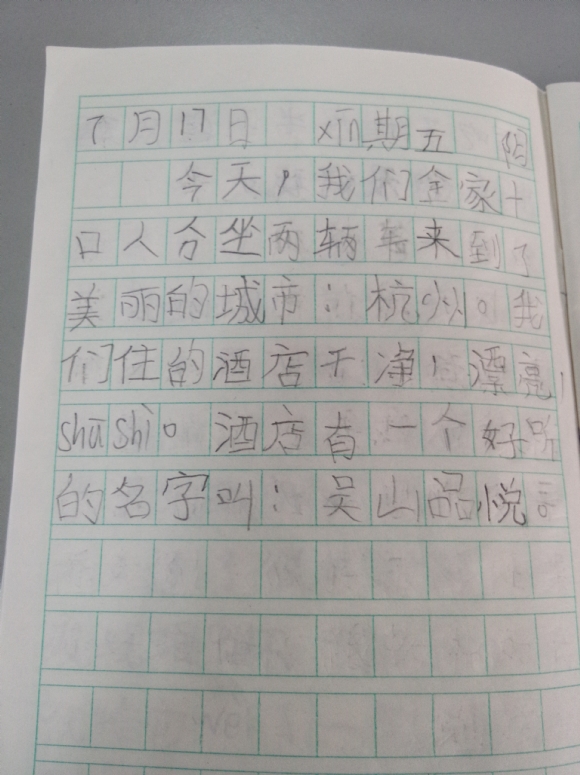 7月17日 xīn期五
今天，我们全家十
口人分坐两辆车来到了
美丽的城市：杭州。我
们住的酒店干净、漂亮、
shūshì。酒店有一个好听
的名字叫：吴山品悦